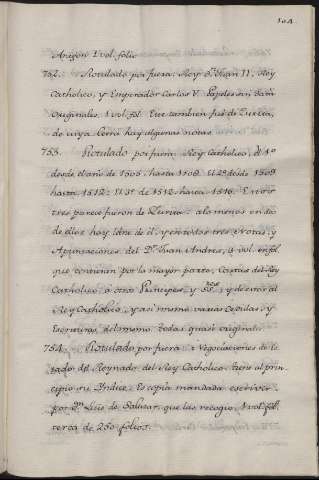 104
Aragon 1 vol. folio
752. Rotulado por fuera: Rey Dn. Juan II, Rey
Catholico, y Emperador Carlos V. Papeles en data
Originales. 1 vol. fol. Este tambien fuè de Zurita,
de cuya letra hay algunas notas.
753. Rotulado por fuera Rey Catholico, el 1º
desde el año de 1506. hasta 1508. El 2º desde 1509
hasta 1512: El 3º de 1512. hasta 1516. Estos
tres parece fueron de Zurita: alomenos en to
de ellos hay letra de él, y en todos tres Notas, y
Apuntaciones del Dr. Juan Andres, 3 vol. en fol.
que contienen por la mayor parte, Cartas del Rey
Catholico à otros Principes, y y de estos al
Rey Catholico, y asi mismo varias Cedulas, y
Escrituras del mismo. Todas quasi originales.
754. Rotulado por fuera: Negociaciones de Es-
tado del Reynado del Rey Catholico. tiene al prin-
cipio su Yndice. Es copia mandada escrivir
por Dn. Luis de Salazar, que las recogio. 1 vol. fol.
cerca de 250 folios.